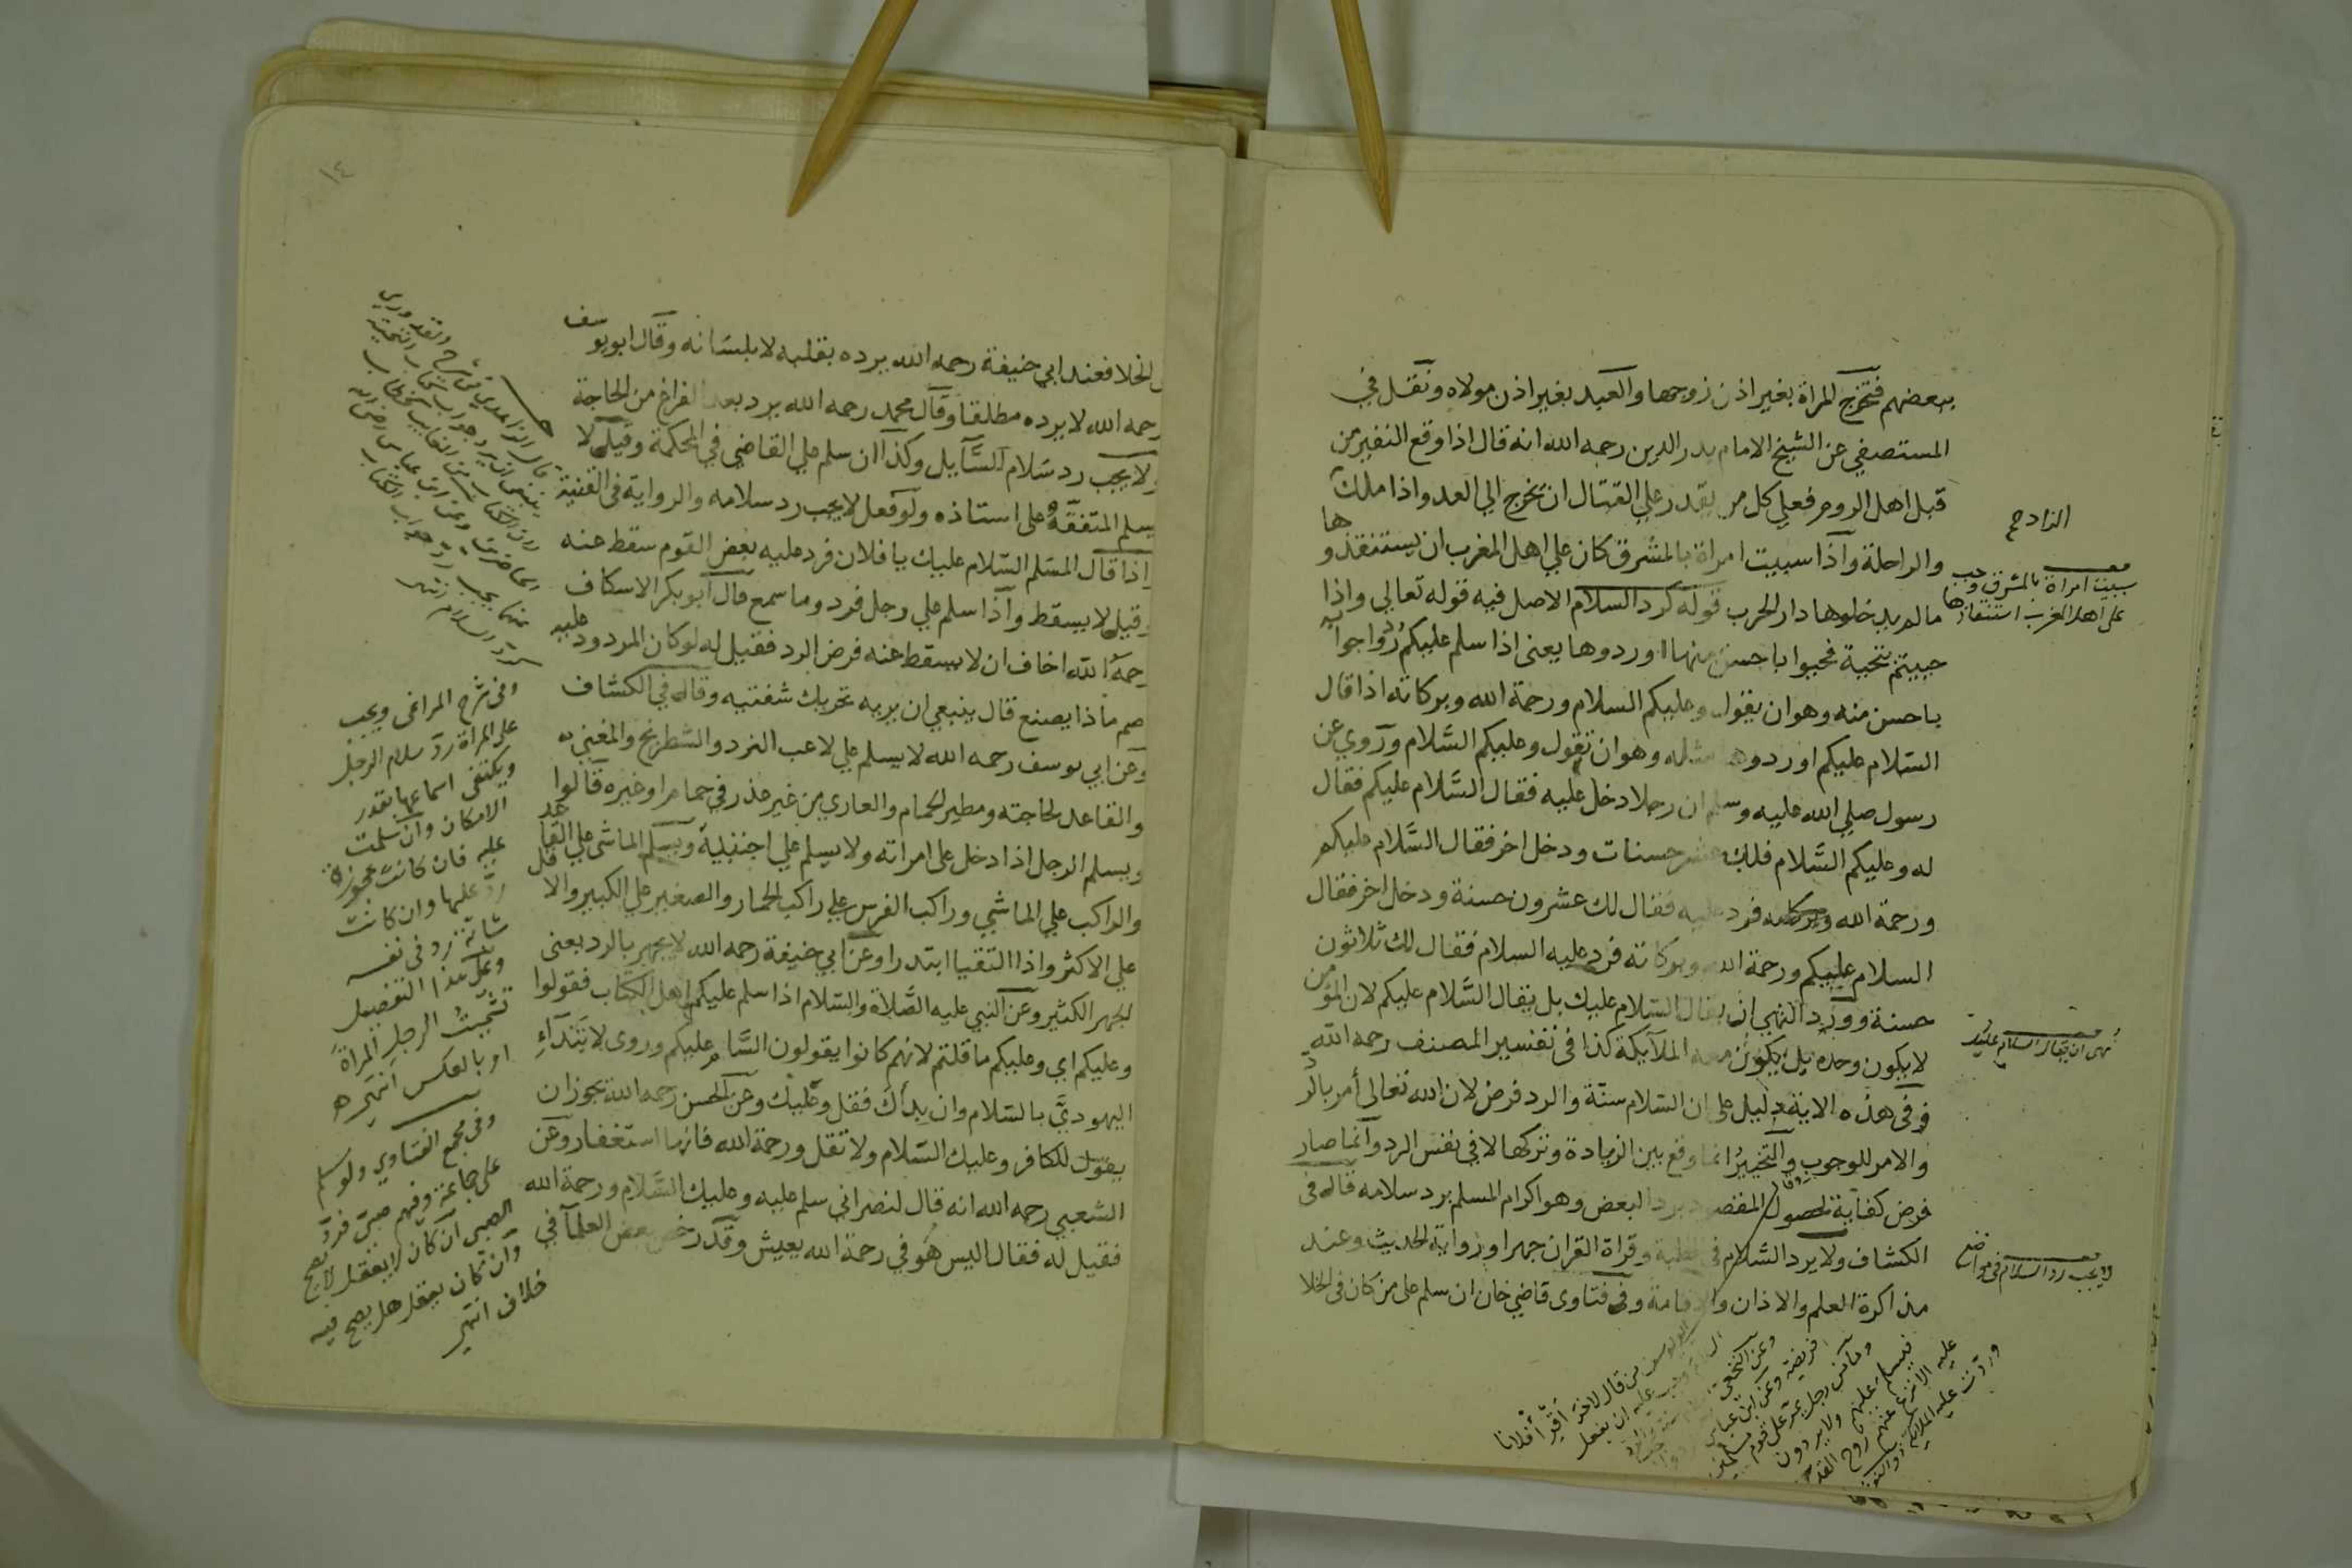 بعضهم فتخرج المراة بغير اذن زوجها والعبد بغير اذن مولاه ونقل في
المستصفي عن الشيخ الامام بدر الدين رحمه الله انه قال اذا وقع النفير من
قبل اهل الروم فعلي كل من يقدر علي القتال ان تخرج الي العدو اذا ملك
الزاد
والراحلة واذا سبيت امراة بالمشرق كان علي اهل المغرب ان يستنقذوها
مالم يدخلوها دار الحرب قوله كرد السلام الاصل فيه قوله تعالي واذا
سبيت امراة بالمشرق وجب
على اهل المغرب استنقاذها
حييتم بتحية فحيوا باحسن منها اوردوها يعنى اذا سلم عليكم فردوا جوابه
باحسن منه وهو ان يقول وعليكم السلام ورحمة الله وبركاته اذا قال
السلام عليكم اوردوها مثله وهو ان تقول وعليكم السّلام وروي عن
رسول صلي الله عليه وسلم ان رجلا دخل عليه فقال السّلام عليكم فقال
له وعليكم السّلام فلك عشر حسنات ودخل اخر فقال السّلام عليكم
ورحمة الله فرد عليه فقال لك عشرون حسنة ودخل اخر فقال
السلام عليكم ورحمة الله وبركاته فرد عليه السلام فقال لك ثلاثون
حسنة وورد النهي ان يقال السلام عليك بل يقال السّلام عليكم لان المؤمن
لا يكون وحده بل يكون معه الملآيكة كذا فى تفسير المصنف رحمه الله
نهى ان يقال السلام عليك
وفى هذه الاية دليل على ان السّلام سنّة والرد فرض لان الله تعالى أمر بالرد
والامر للوجوب والتخيير انما وقع بين الزيادة وتركها لا في نفس الرد وانما صار
فرض كفاية لحصول المقصود برد البعض وهو اكرام المسلم برد سلامه قاله فى
الكشاف ولا يرد السّلام فى الخطبة وقراة القران جهرا ورواية الحديث وعند
لا يجب رد السلام فى مواضع
مذاكرة العلم والاذان والاقامة وفى فتاوى قاضي خان ان سلم على من كان فى الخلا
من قال لاخر أقرأ فلانا
وعن النخعى
وعن ابن عباس
رجل يمر على قوم مسلمين
فيسلم عليهم ولا يردون
عليه الا نزع عنهم روح القدس
وردت عليه الملائكة
١٤
الخلا فعند ابي حنيفة رحمه الله يرده بقلبه لا بلسانه وقال ابو يوسف
رحمه الله لا يرده مطلقا وقال محمد رحمه الله يرد بعد الفراغ من الحاجة
ولا يجب رد سَلام السَّآيل وكذا ان سلم علي القاضي في المحكمة وقيل لا
يسلم المتفقّه على استاذه ولو فعل لا يجب رد سلامه والرواية فى القنية
اذا قال المسَلم السّلام عليك يا فلان فرد عليه بعض القوم سقط عنه
وقيل لا يسقط واذا سلم علي رجل فرد وما سمع قال ابو بكر الاسكاف
رحمه الله اخاف ان لا يسقط عنه فرض الرد فقيل له لو كان المردود عليه
اصم ماذا يصنع قال ينبغي ان يريه تحريك شفتيه وقاله في الكشاف
وعن ابي يوسف رحمه الله لا يسلم علي لاعب النرد والشطرنج والمغني
والقاعد لحاجته ومطير الحمام والعاري من غير عذر في حمام او غيره قالوا
ويسلم الرجل اذا دخل على امراته ولا يسلم علي اجنبية ويسلم الماشي علي القاعد
والراكب علي الماشي وراكب الفرس علي راكب الحمار والصغير علي الكبير والاقل
علي الاكثر واذا التقيا ابتدرا وعن ابي حنيفة رحمه الله لا يجهر بالرد يعنى
الجهر الكثير وعن النبي عليه الصّلاة والسّلام اذا سلم عليكم اهل الكتاب فقولوا
وعليكم اي وعليكم ما قلتم لانهم كانوا يقولون السَّام عليكم وروى لا تبتداء
اليهوديَّ بالسّلام وان بدأك فقل وعليك وعن الحسن رحمه الله يجوز ان
يقول للكافر وعليك السّلام ولا تقل ورحمة الله فانها استغفار وعن
الشعبي رحمه الله انه قال لنصراني سلم عليه وعليك السّلام ورحمة الله
فقيل له فقال اليس هُو في رحمة الله يعيش وقد رخص بعض العلمآ في
وفى شرح المراغى ويجب
على المراة رد سلام الرجل
ويكتفى اسماعها بقدر
الامكان وان سلمت
عليه فان كانت عجوزة
رد عليها وان كانت
شابة رد فى نفسه
وعلى هذا التفصيل
تشميت الرجل المراة
او بالعكس انتهى
وفى مجمع الفتاوي ولو سلم
على جماعة وفيهم صبى فرد
الصبى ان كان لا يعقل لا يصح
وان كان يعقل هل يصح فيه
خلاف انتهى